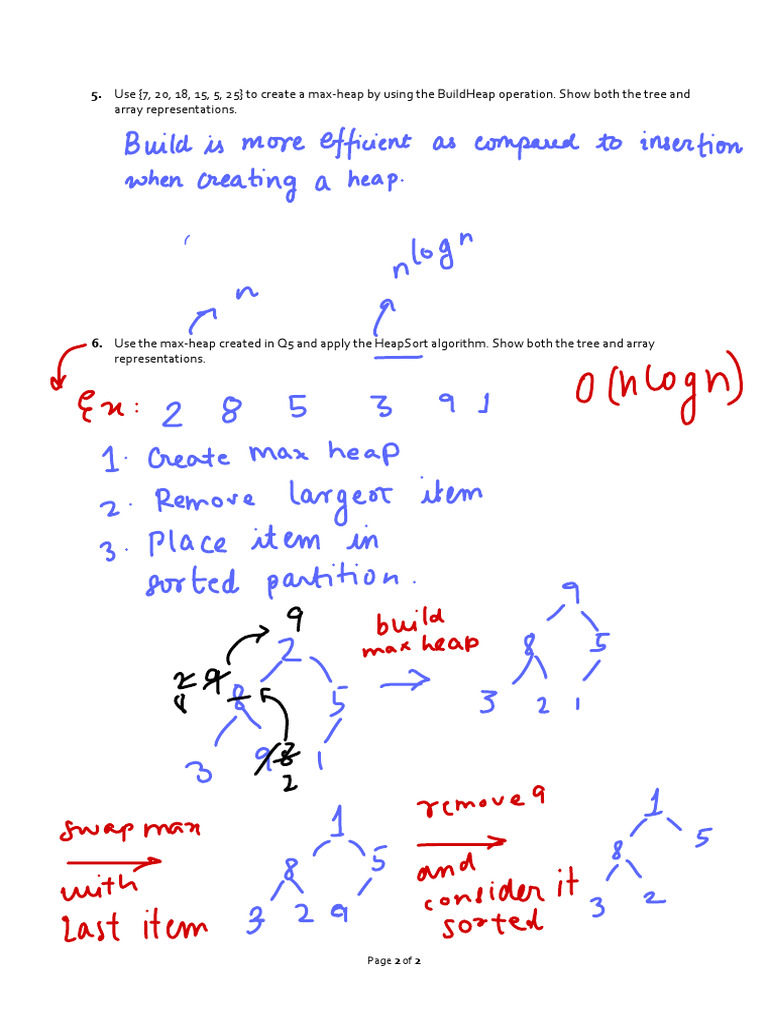 5. Use {7, 20, 18, 15, 5, 25} to create a max-heap by using the BuildHeap operation. Show both the tree and
array representations.
Build is more efficient as compared to insertion
when creating a heap.
n
nlogn
6. Use the max-heap created in Q5 and apply the HeapSort algorithm. Show both the tree and array
representations.
O(nlogn)
Ex: 2 8 5 3 9 1
1. Create max heap
2. Remove largest item
3. Place item in
sorted partition.
9
2
8
5
3
9
1
2
build
max heap
9
8 5
3 2 1
swap max
with
last item
1
8 5
3 2 9
remove 9
and
consider it
sorted
1
8 5
3 2
Page 2 of 2